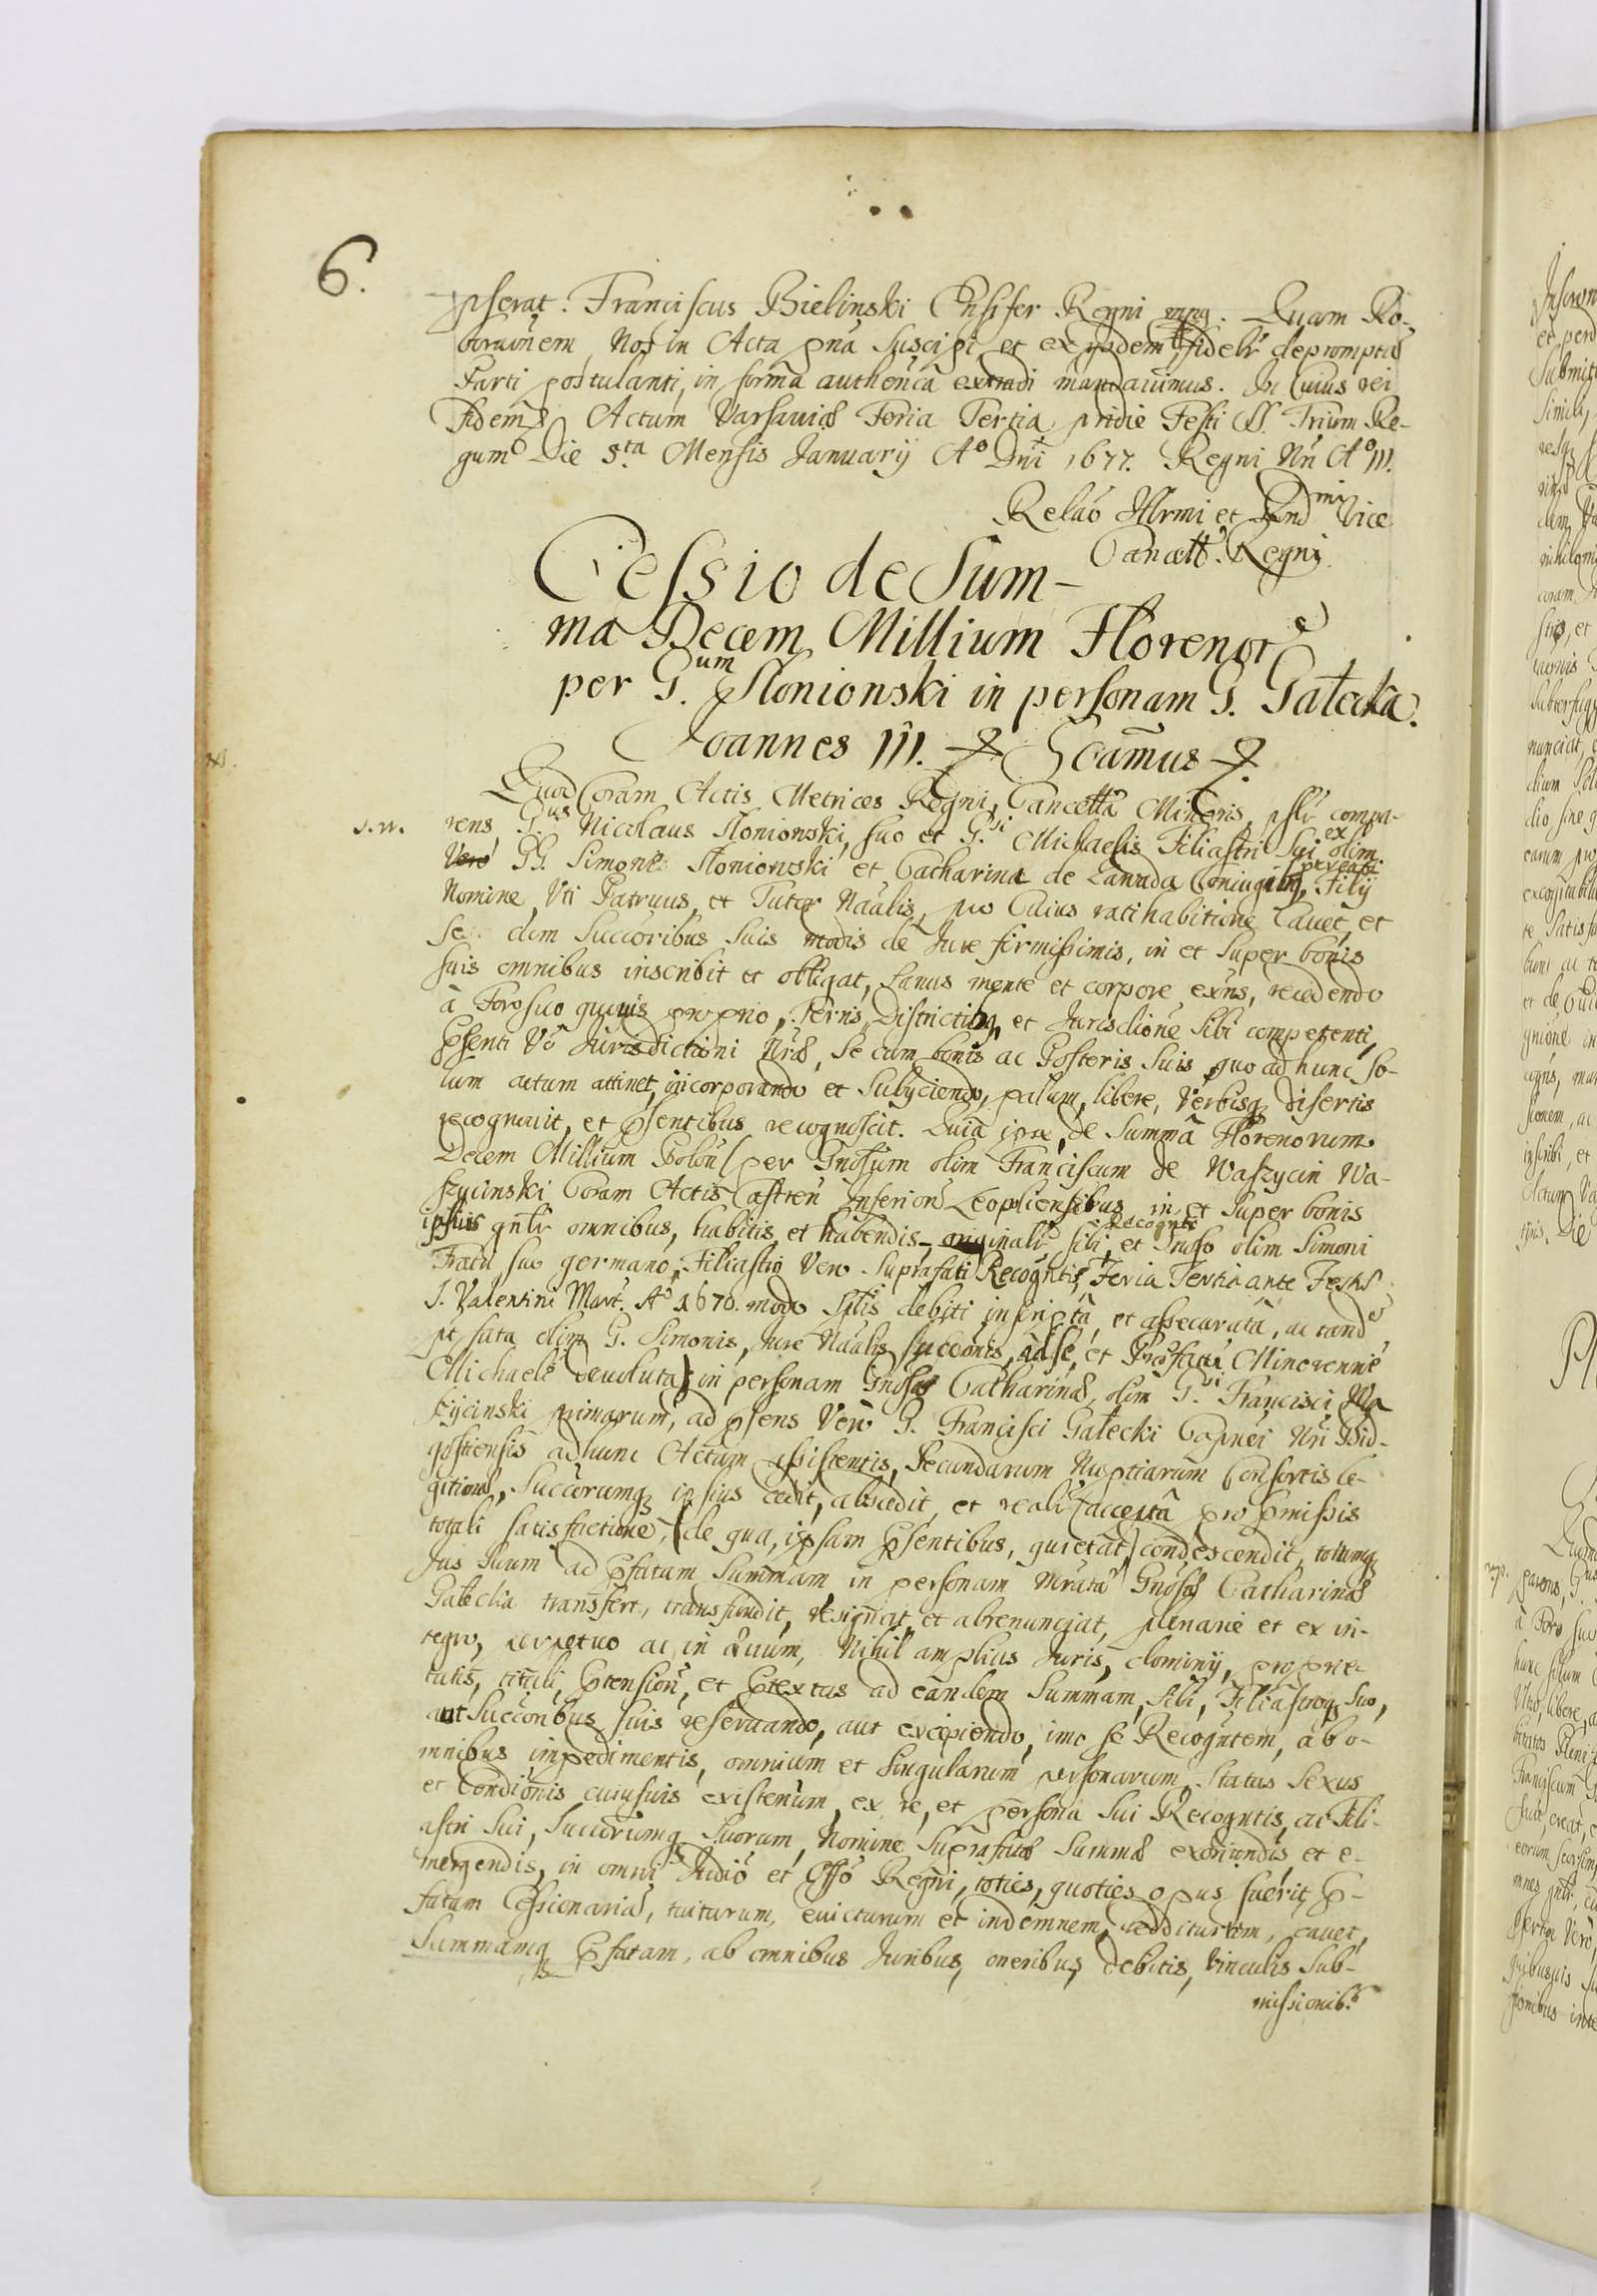 6.
pserat. Franciscus Bielinski Ensifer Regni mpp. Quam Ro-
boraõnem, Nos in Acta pñã suscipi et ex ijsdem fidelr̃ depromptã
Parti postulanti, in forma authen̄cã extradi mandauimus. In Cuius rei
fidem &. Actum Varsauiæ Feria Tertia pridie Festi SS. Trium Re-
gum Die 5.ta Mensis January Aº Dn̄i 1677. Regni Nr̃i Aº III.
Relaõ Illrmi et Rnd mi Vice
Cancell. Regni.
Cessio de Sum-
ma Decem Millium Florenor̃
per G.um Słonionski in personam G. Gałecka.
Joannes III. & Sc̃amus &.
Quod Coram Actis Metrices Regni, Cancella Minoris, pslr̃ compa-
rens G.us Nicolaus Słonionski, suo et G.si Michaelis Filiastri Sui ex olim
Vero GG. Simone Słonionski et Catharina de Lawada Coniugibus, Filij
Nomine, Vti Patruus, et Tutor Naãlis, pro Cuius ratihabitione Cauet, et
se cum Succoribus suis modis de Jure firmissimis, in et super bonis
suis omnibus inscribit et obligat, sanus mente et corpore exñs, recedendo
à Foro suo quouis proprio, Terris, Districtibq, et Jurisdiõne sibi competenti,
Psenti Vº Jurisdictioni Nræ, se cum bonis ac Posteris suis, quo ad hunc so-
lum actum attinet, incorporando et Subijciendo, palum, libere, Verbisq disertis
recognouit, et Psentibus recognoscit. Quia ipse, de Summa Florenorum
Decem Millium Polon̄ (per Gnosum olim Franciscum de Waszycin Wa-
szycinski Coram Actis Castren̄ Inferior Leopoliensibus in et super bonis
ipsius gn̄lr omnibus, habitis et habendis, originalr̃ sibi Recogn̄ti, et Gnoso olim Simoni
Fratri suo germano, Filiastri Vero Suprafati Recogn̄tis, Feria Tertia ante Festũ
S. Valentini Mart. Aº 1670. modo Splis debiti inscriptã, et assecuratã, ac tand
pt fata olim G. Simonis, Jure Naãlis Succonis, ad se, et Præfatũ Minorennē
Michaelē deuolutã) in personam Gnosæ Catharinæ, olim G.si Francisci Wa
szycinski primarum, ad Psens Vero G. Francisci Gałecki Capnei Nr̃i Bid-
gostiensis ad hunc Actum assistentis, Secundarum Nuptiarum Consortis le-
gitimæ, Succorumq ipsius cedit, abscedit, et reali (acceptã pro pmissis
totali satisfactione, de qua, ipsam Psentibus, quietat) condescendit, totumq
Jus suum ad Pfatam Summam in personam mratæ Gnosæ Catharinæ
Gałecka transfert, transfundit, resignat, et abrenunciat, plenarie et ex in-
tegro, perpetuo ac in æuum, Nihil amplius Juris, dominij, proprie-
tatis, tituli, Ptension̄, et Ptextus ad eandem Summam, sibi, Filiastroq Suo,
aut Succoribus suis reseruando, aut excipiendo, imo se Recogn̄tem, ab o-
mnibus impedimentis, omnium et singularum personarum, Status Sexus
et Condiõnis cuiusuis existen̄um, ex re, et persona Sui Recogn̄tis, ac Fili-
astri Sui, Succorumq Suorum, Nomine Suprafatæ Summæ exoriundis, et e-
mergendis, in omni Judiõ et Offõ Regni, toties, quoties opus fuerit, P-
fatam Cessionariã, tuiturum, euicturum et indemnem redditurum, cauet,
Summamq Pfatam, ab omnibus Juribus, oneribus, debitis, Vinculis Sub-
missionib.